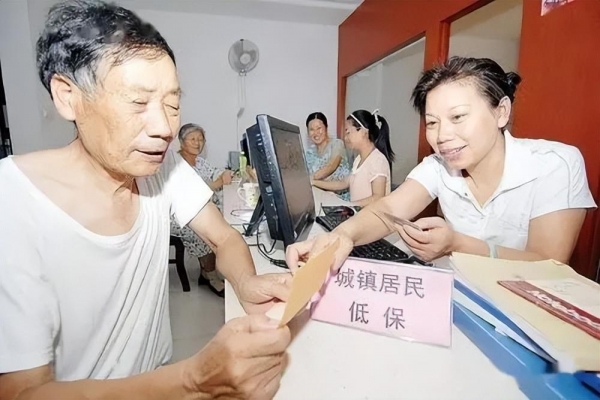 城镇居民
低保